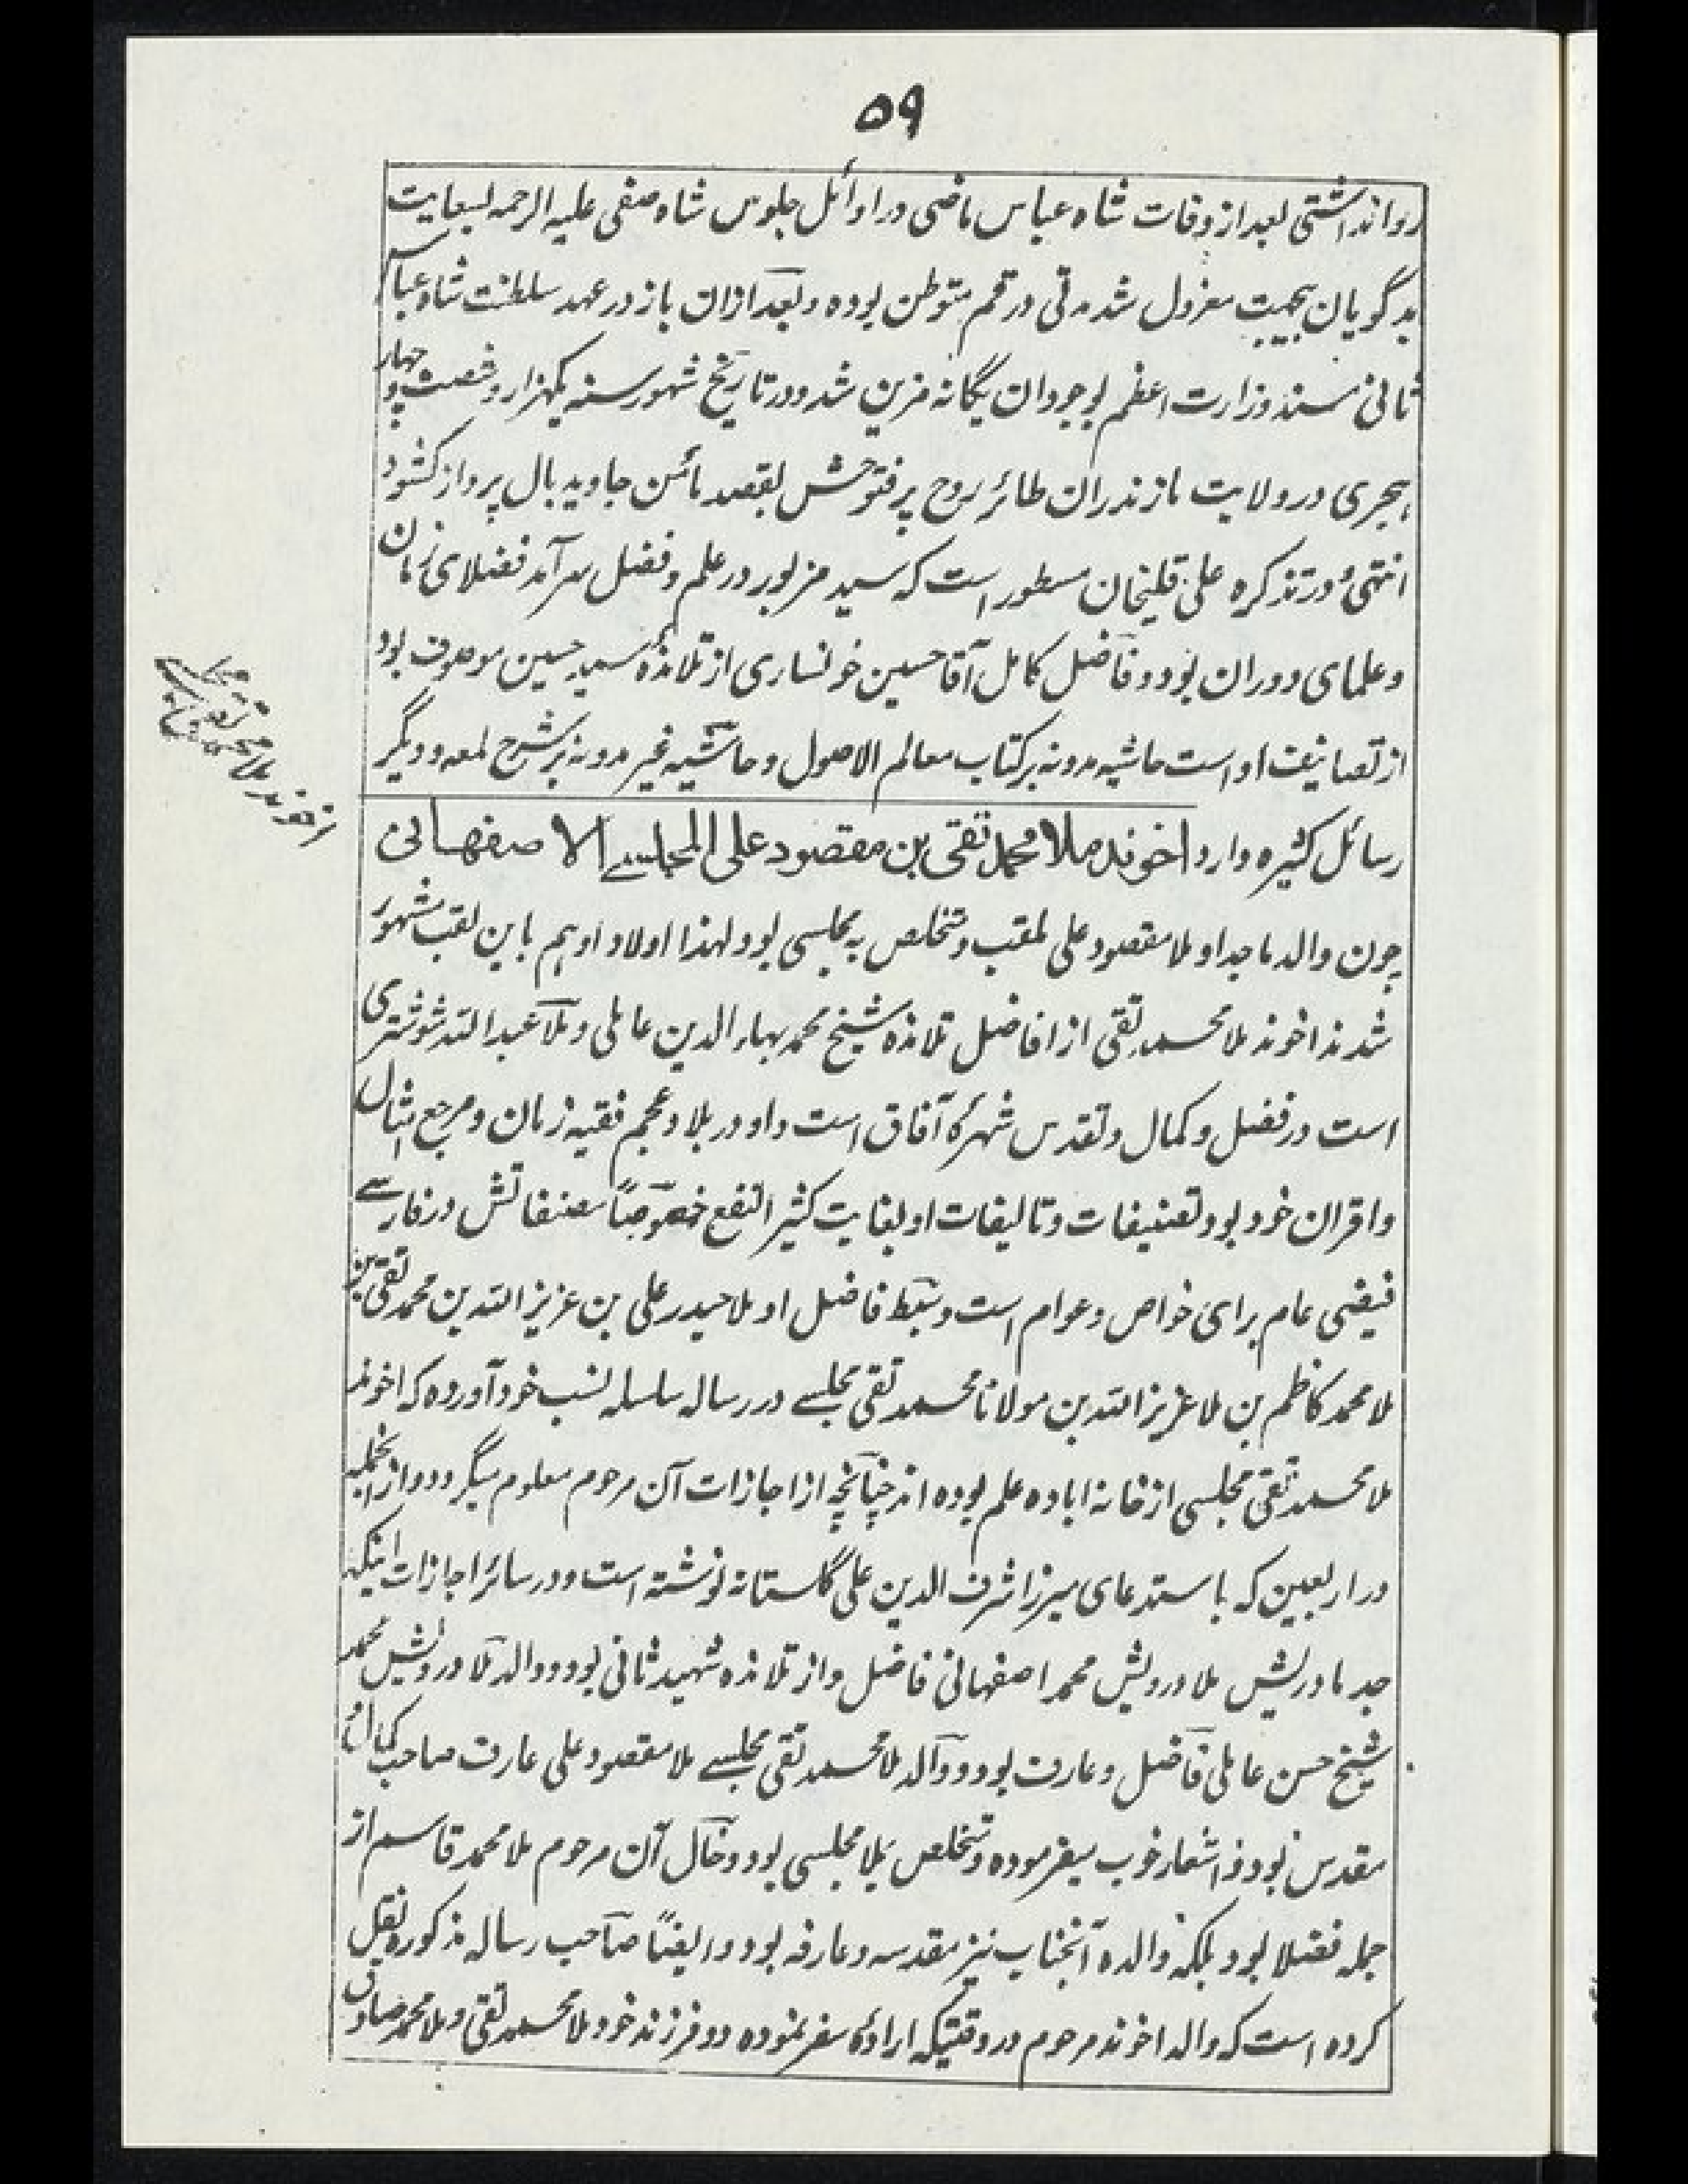 ۵۹
روانداشتی بعد از وفات شاه عباس ماضی در اوائل جلوس شاه صفی علیه الرحمه بسعایت
بدگویان بیجهت معزول شد مدتی در قم متوطن بوده و بعد ازان باز در عهد سلطنت شاه عباس
ثانی مسند وزارت اعظم بوجود ان یگانه مزین شد و در تاریخ شهور سنه یکهزار و شصت و چهار
هجری در ولایت مازندران طائر روح پرفتوحش بقصد مأمن جاوید بال پرواز کشود
انتهی و در تذکره علی قلیخان مسطور است که سید مزبور در علم و فضل سرآمد فضلای زمان
و علمای دوران بود و فاضل کامل آقا حسین خوانساری از تلامذهٔ سید حسین موصوف بود
از تصانیف او است حاشیه مدونه بر کتاب معالم الاصول و حاشیه غیر مدونه بر شرح لمعه و دیگر
رسائل کثیره دارد اخوند ملا محمد تقی بن مقصود علی المجلسے الاصفهانی
چون والد ماجد او ملا مقصود علی ملقب و متخلص به مجلسی بود لهذا اولاد او هم باین لقب مشهور
شدند اخوند ملا محمد تقی از افاضل تلامذه شیخ محمد بهاء الدین عاملی و ملا عبد الله شوشتری
است در فضل و کمال و تقدس شهرهٔ آفاق است و او در بلاد عجم فقیه زمان و مرجع امثال
و اقران خود بود تصنیفات و تالیفات او بغایت کثیر النفع خصوصاً مصنفاتش در فارسے
فیضی عام برای خواص و عوام است و سبط فاضل او ملا حیدر علی بن عزیز الله بن محمد تقی بن
ملا محمد کاظم بن ملا عزیز الله بن مولانا محمد تقی مجلسے در رساله سلسله نسب خود آورده که اخوند
ملا محمد تقی مجلسی از خانه اباده علم بوده اند چنانچه از اجازات آن مرحوم معلوم میگردد و از انجمله
در اربعین که باستدعای میرزا شرف الدین علی گلستانه نوشته است و در سائر اجازات اینکه
جد مادریش ملا درویش محمد اصفهانی فاضل و از تلامذه شهید ثانی بود و والد ملا درویش محمد
شیخ حسن عاملی فاضل و عارف بود و والد ملا محمد تقی مجلسے ملا مقصود علی عارف صاحب کمال و
مقدس بود و اشعار خوب میفرموده و متخلص بملا مجلسی بود و خال آن مرحوم ملا محمد قاسم از
جمله فضلا بود بلکه والده آنجناب نیز مقدسه و عارفه بود و ایضاً صاحب رساله مذکوره نقل
کرده است که والد اخوند مرحوم در وقتیکه ارادهٔ سفر نموده دو فرزند خود ملا محمد تقی و ملا محمد صادق